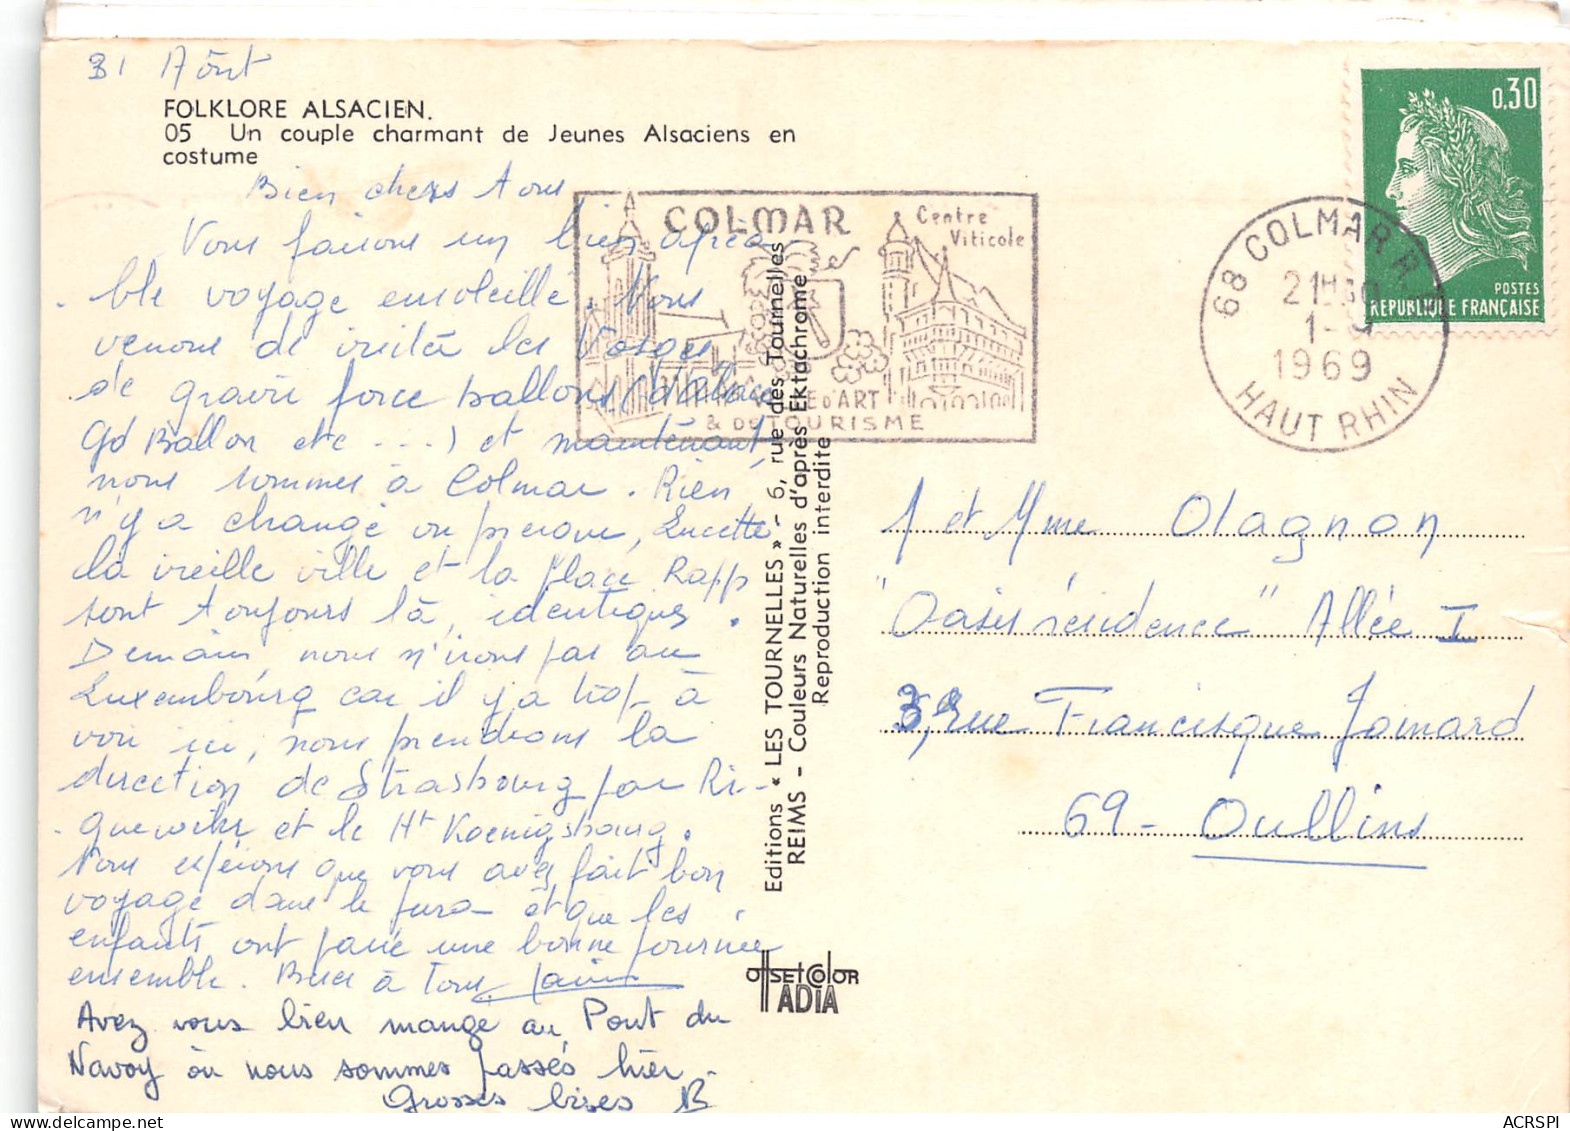 31 Août
FOLKLORE ALSACIEN.
05 Un couple charmant de Jeunes Alsaciens en
costume
Bien chers tous
Nous faisons un bien agréa-
ble voyage ensoleillé. Nous
venons de visiter les Vosges
de gravir force ballons (d'alsace
Gd Ballon etc ...) et maintenant
nous sommes à Colmar. Rien
n'y a changé ou presque, Lucette
la vieille ville et la place Rapp
sont toujours là, identiques.
Demain, nous n'irons pas au
Luxembourg car il y a trop à
voir ici, nous prendrons la
direction de Strasbourg par Ri-
quewihr et le Ht Koenigsbourg.
Nous espérons que vous avez fait bon
voyage dans le Jura et que les
enfants ont passé une bonne journée
ensemble. Bises à Tous
Avez vous bien mangé au Pont du
Navoy où nous sommes passés hier.
Grosses bises B
Editions « LES TOURNELLES » - 6, rue des Tournelles
REIMS - Couleurs Naturelles d'après Ektachrome
Reproduction interdite
OffSET COlOR
ADIA
COLMAR
Centre
Viticole
D'ART
& DE TOURISME
68 COLMAR R.P.
21H30
1-9
1969
HAUT RHIN
0,30
POSTES
REPUBLIQUE FRANÇAISE
M et Mme Olagnon
"Oasis résidence" Allée I
3, rue Francisque Jomard
69 - Oullins
ACRSPI